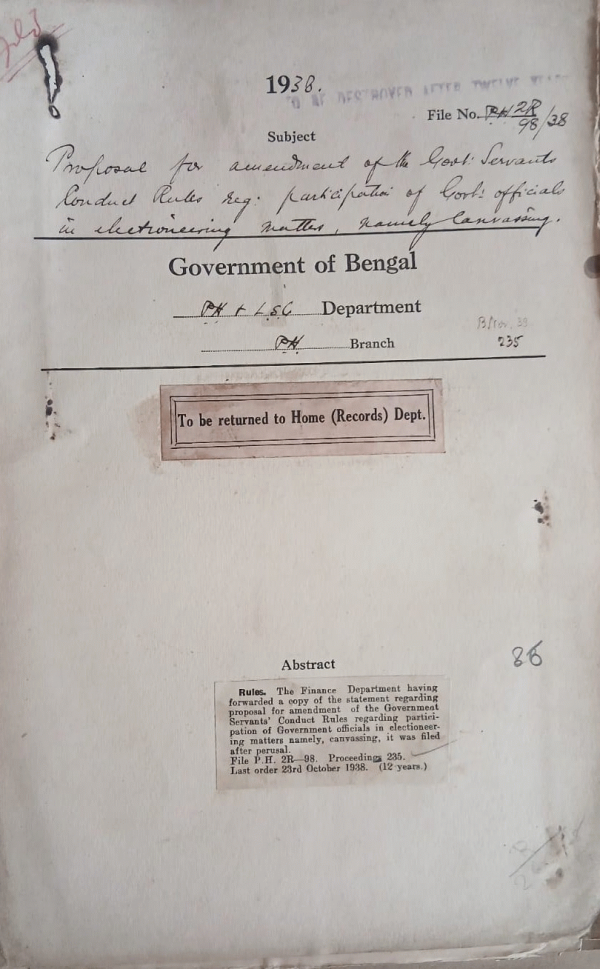 1938.
TO BE DESTROYED AFTER TWELVE
File No. PH 2R
98/38
Subject
Proposal for amendment of the Govt. Servants
Conduct Rules reg: participation of Govt. officials
in electioneering matters, namely Canvassing.
Government of Bengal
PH & LSG Department
PH Branch
B/Nov. 38
235
To be returned to Home (Records) Dept.
Abstract
Rules. The Finance Department having
forwarded a copy of the statement regarding
proposal for amendment of the Government
Servants' Conduct Rules regarding partici-
pation of Government officials in electioneer-
ing matters namely, canvassing, it was filed
after perusal.
File P.H. 2R—98. Proceedings 235.
Last order 23rd October 1938. (12 years.)